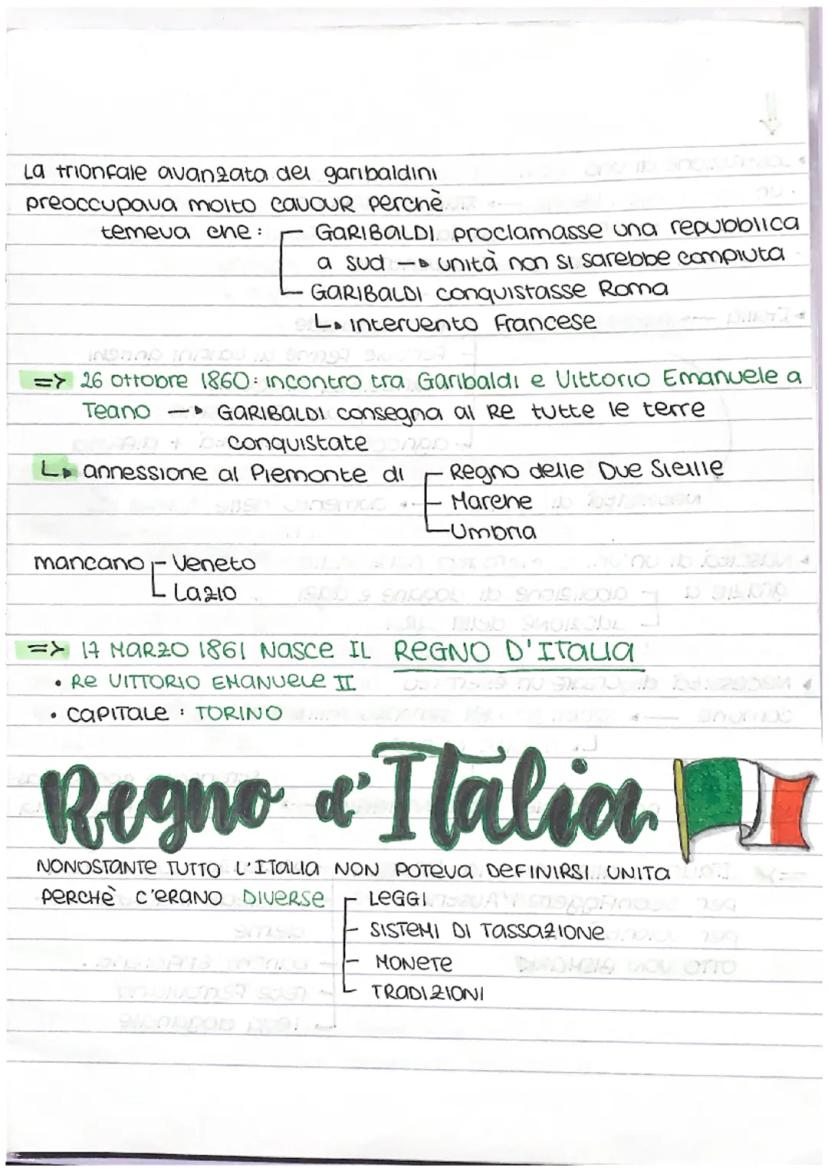 La trionfale avanzata dei garibaldini
preoccupava molto CAVOUR perchè
temeva che: GARIBALDI proclamasse una repubblica
a sud → unità non si sarebbe compiuta
GARIBALDI conquistasse Roma
↳ intervento Francese
=> 26 ottobre 1860: incontro tra Garibaldi e Vittorio Emanuele a
Teano → GARIBALDI consegna al Re tutte le terre
conquistate
↳ annessione al Piemonte di Regno delle Due Sicilie
Marche
Umbria
mancano Veneto
Lazio
=> 17 MARZO 1861 NASCE IL REGNO D'ITALIA
• RE VITTORIO EMANUELE II
• CAPITALE : TORINO
Regno d'Italia
NONOSTANTE TUTTO L'ITALIA NON POTEVA DEFINIRSI UNITA
PERCHÈ C'ERANO DIVERSE LEGGI
SISTEMI DI TASSAZIONE
MONETE
TRADIZIONI